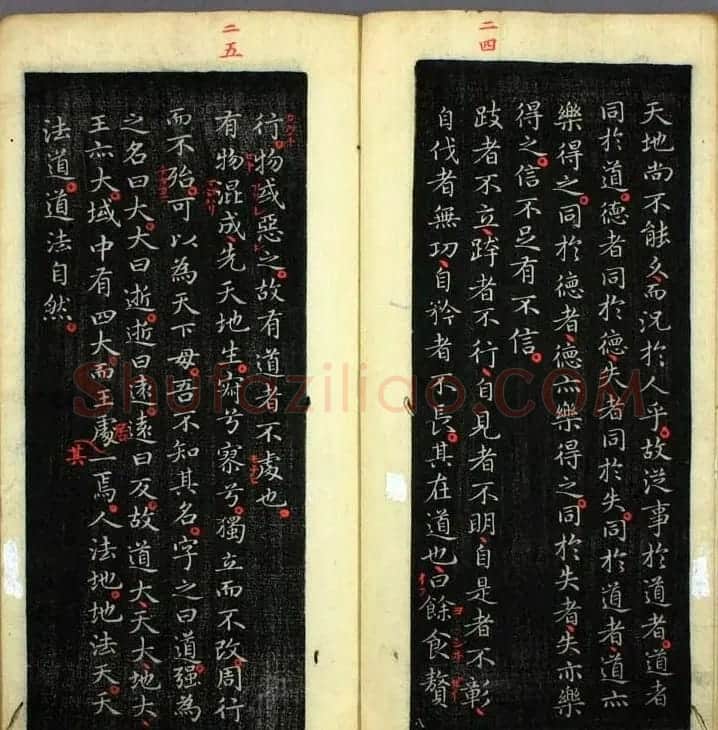 二四
天地尚不能久、而況於人乎。故從事於道者。道者
同於道。德者同於德、失者同於失。同於道者、道亦
樂得之。同於德者、德亦樂得之。同於失者、失亦樂
得之。信不足有不信。
跂者不立、跨者不行、自見者不明、自是者不彰、
自伐者無功、自矜者不長。其在道也、曰餘食贅
二五
行。物或惡之。故有道者不處也。
有物混成、先天地生。寂兮寥兮。獨立而不改。周行
而不殆。可以為天下母。吾不知其名。字之曰道。强為
之名曰大。大曰逝。逝曰遠。遠曰反。故道大、天大、地大、
王亦大。域中有四大、而王處一焉。人法地。地法天。天
法道。道法自然。
居
其
Shufaziliao.COM